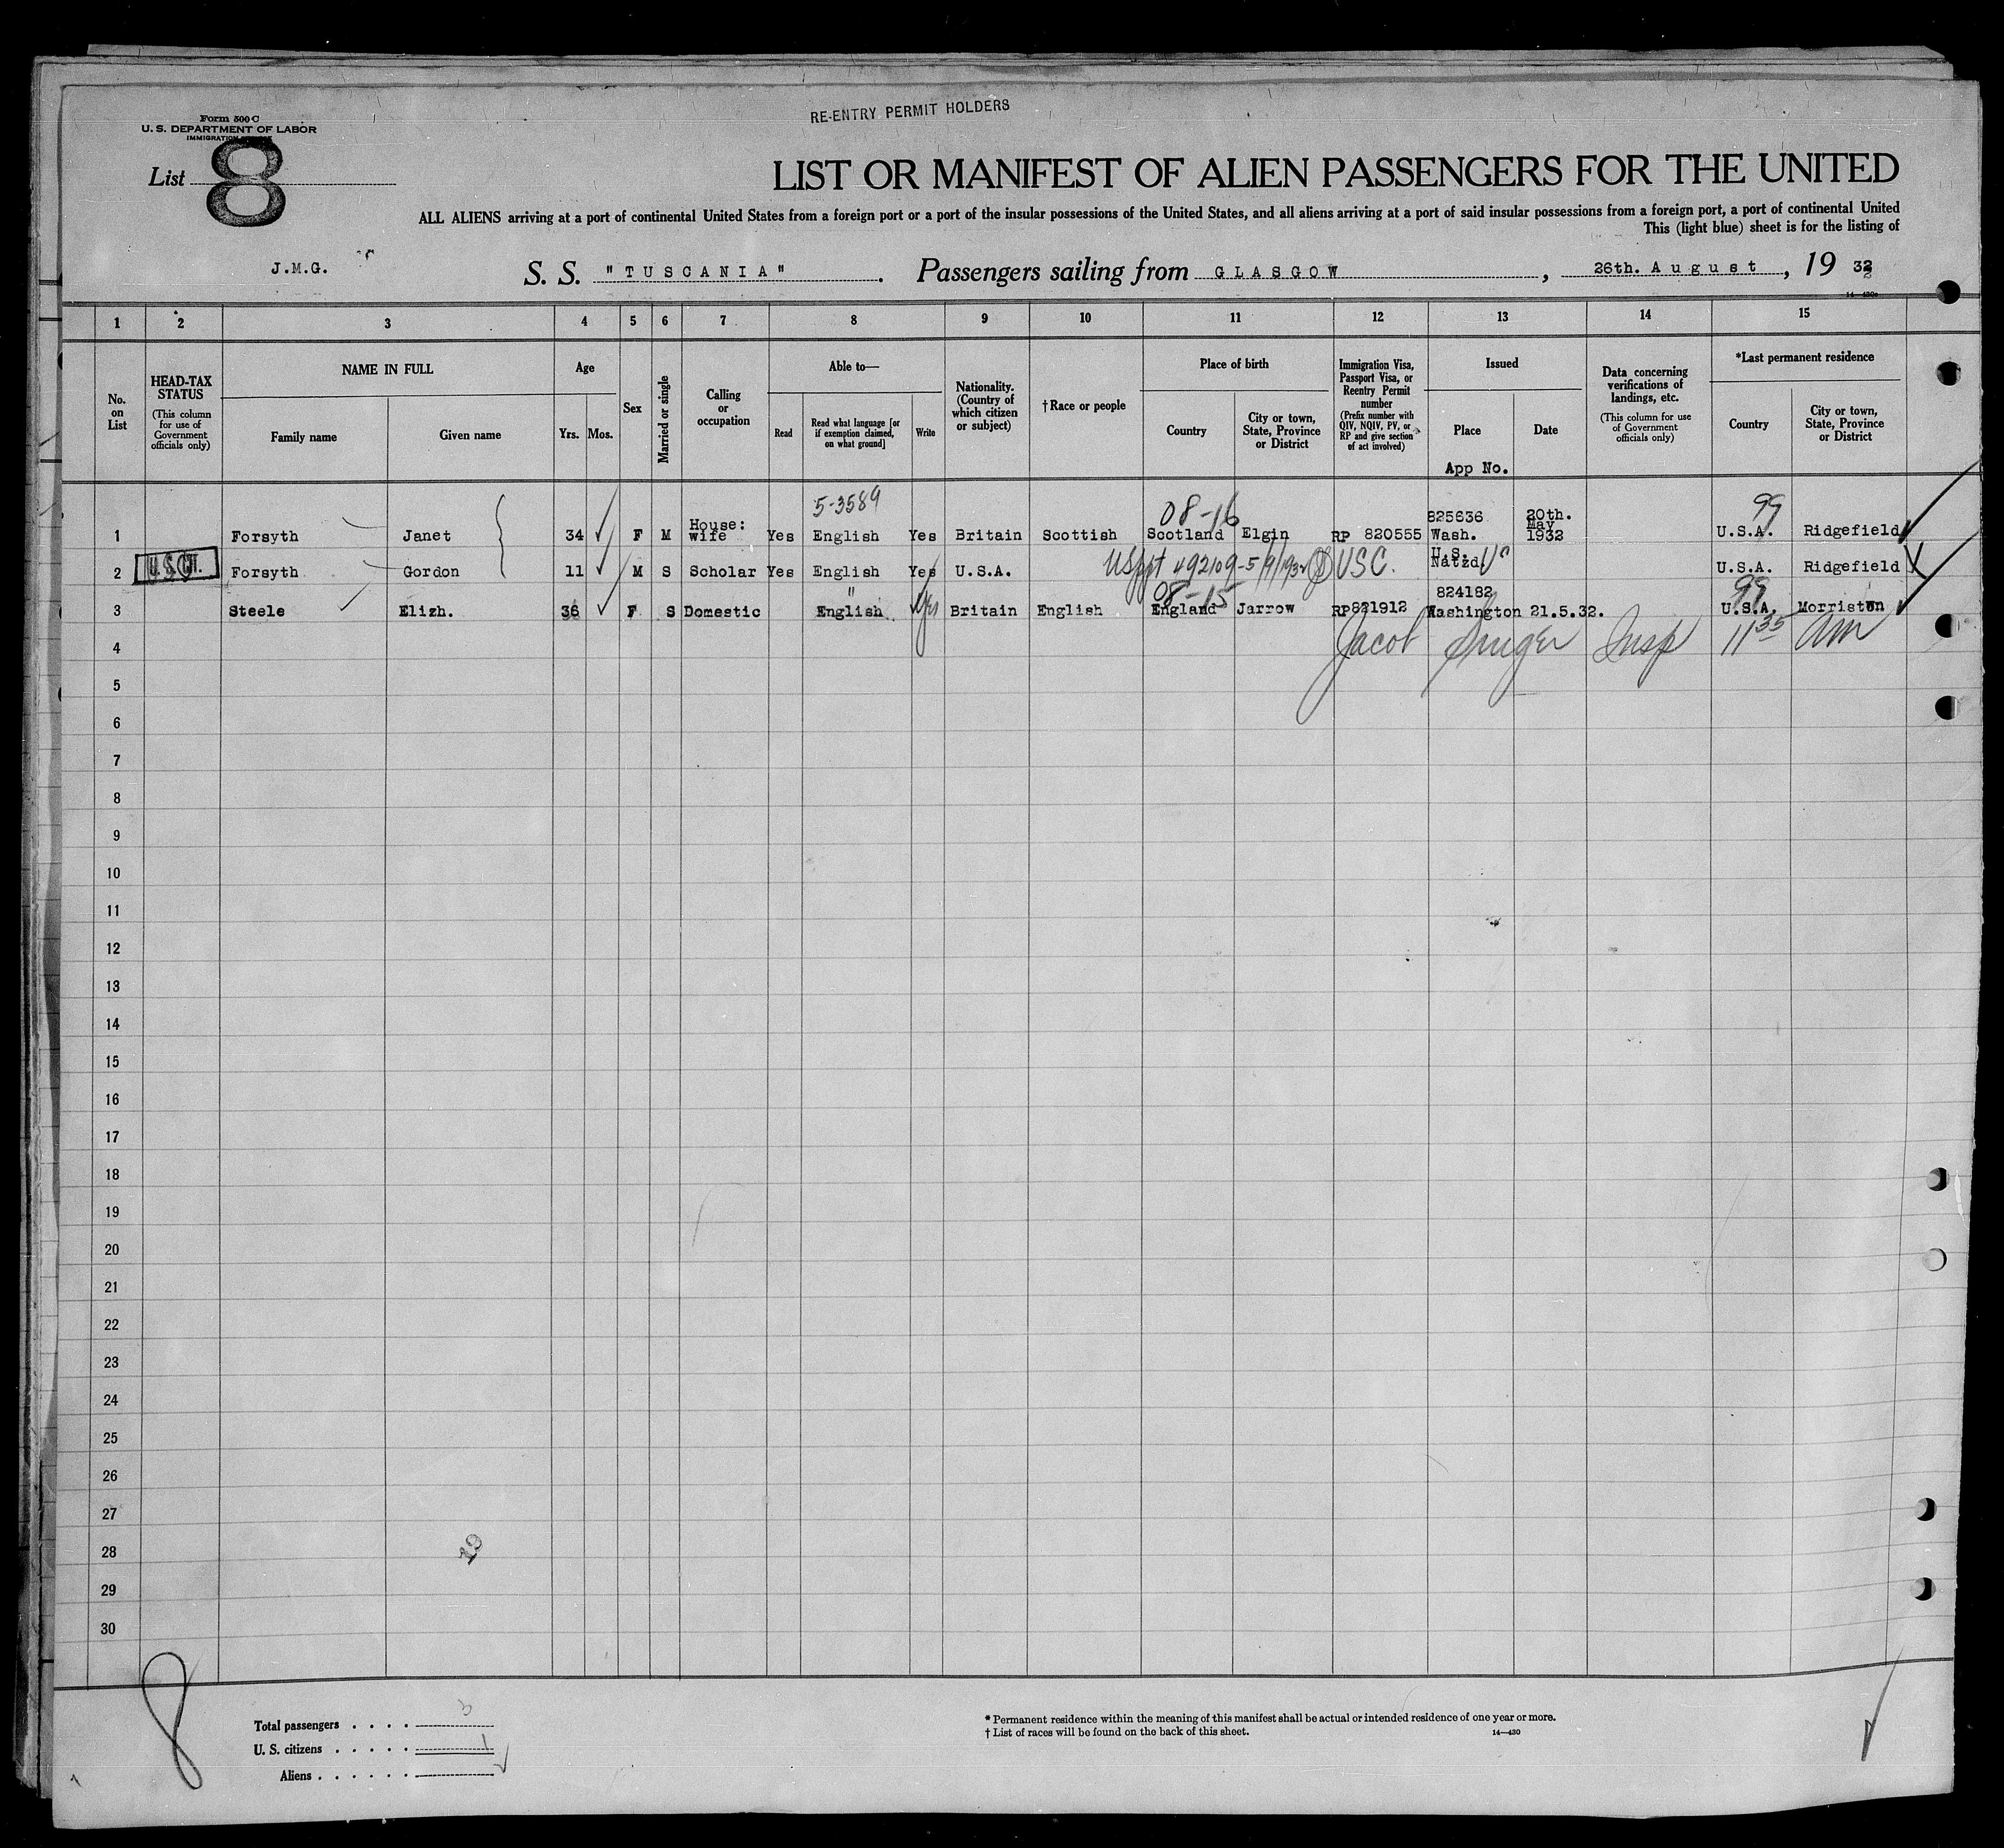 RE-ENTRY PERMIT HOLDERS
Form 500 C
U. S. DEPARTMENT OF LABOR
IMMIGRATION
List 8
LIST OR MANIFEST OF ALIEN PASSENGERS FOR THE UNITED
ALL ALIENS arriving at a port of continental United States from a foreign port or a port of the insular possessions of the United States, and all aliens arriving at a port of said insular possessions from a foreign port, a port of continental United
This (light blue) sheet is for the listing of
J.M.G. S. S. "TUSCANIA". Passengers sailing from GLASGOW, 26th. August, 19 32
14—430c
1 2 3 4 5 6 7 8 9 10 11 12 13 14 15
No. on List
HEAD-TAX STATUS (This column for use of Government officials only)
NAME IN FULL
Family name Given name
Age
Yrs. Mos.
Sex
Married or single
Calling or occupation
Able to—
Read Read what language [or if exemption claimed, on what ground] Write
Nationality. (Country of which citizen or subject)
†Race or people
Place of birth
Country City or town, State, Province or District
Immigration Visa, Passport Visa, or Reentry Permit number (Prefix number with QIV, NQIV, PV, or RP and give section of act involved)
Issued
Place Date
App No.
Data concerning verifications of landings, etc. (This column for use of Government officials only)
*Last permanent residence
Country City or town, State, Province or District
5-3589 08-16 99
1 Forsyth Janet 34 F M House: wife Yes English Yes Britain Scottish Scotland Elgin RP 820555 825636 Wash. 20th. May 1932 U.S.A. Ridgefield
2 U.S.CIT. Forsyth Gordon 11 M S Scholar Yes English Yes U.S.A. USppt 492109-5/9/1932 USC. U.S. Natzd. U.S.A. Ridgefield
08-15 99
3 Steele Elizh. 36 F S Domestic " English Yes Britain English England Jarrow RP821912 824182 Washington 21.5.32. U.S.A. Morristwn
4 Jacob Insp 11 35 am
5
6
7
8
9
10
11
12
13
14
15
16
17
18
19
20
21
22
23
24
25
26
27
28
29
30
8
Total passengers . . . . 3
U. S. citizens . . . . . 1
Aliens . . . . . .
* Permanent residence within the meaning of this manifest shall be actual or intended residence of one year or more.
† List of races will be found on the back of this sheet. 14—430